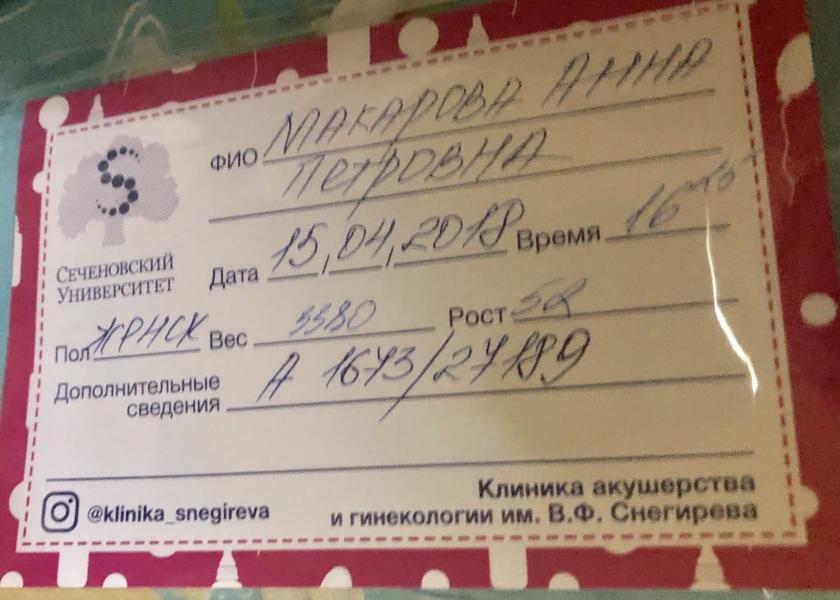 ФИО МАКАРОВА АННА
ПЕТРОВНА
СЕЧЕНОВСКИЙ
УНИВЕРСИТЕТ
Дата 15,04,2018 Время 16 15
Пол ЖЕНСК Вес 3380 Рост 52
Дополнительные
сведения А 1673/27189
@klinika_snegireva
Клиника акушерства
и гинекологии им. В.Ф. Снегирева